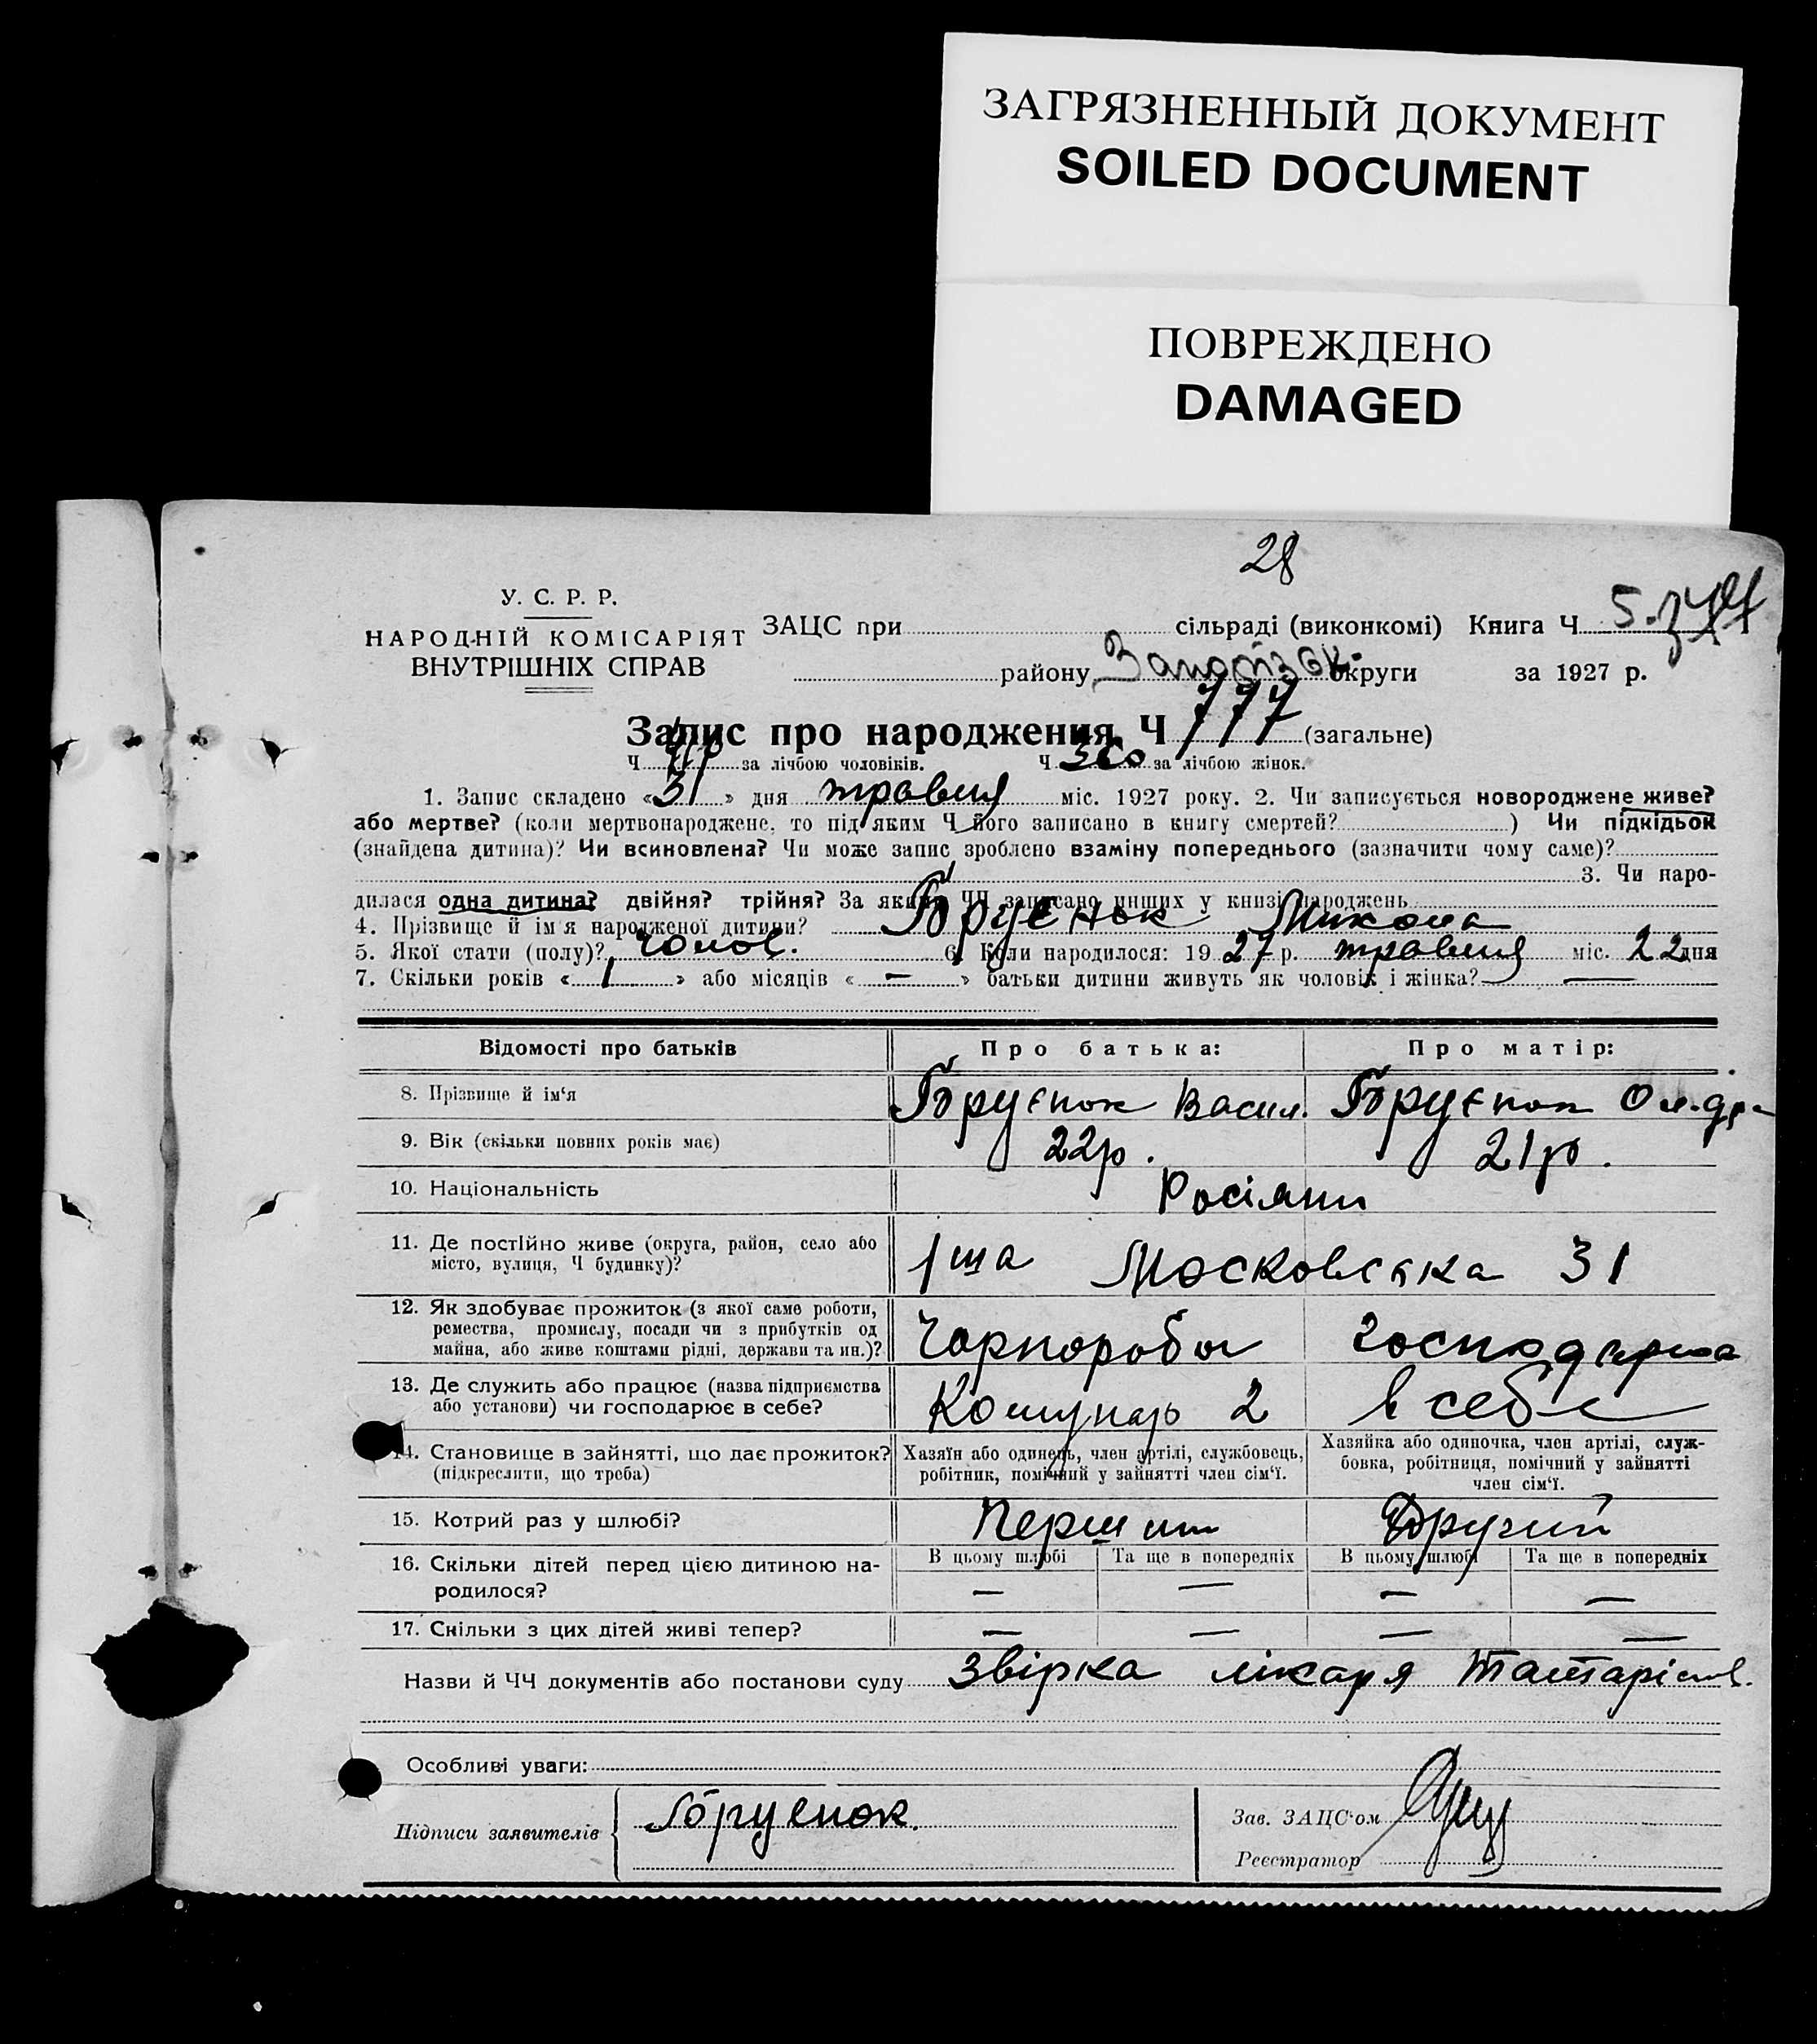 ЗАГРЯЗНЕННЫЙ ДОКУМЕНТ
SOILED DOCUMENT
ПОВРЕЖДЕНО
DAMAGED
28
У. С. Р. Р.
НАРОДНІЙ КОМІСАРІЯТ
ВНУТРІШНІХ СПРАВ
ЗАЦС при сільраді (виконкомі) Книга Ч 5
району округи за 1927 р.
Запис про народження Ч 777 (загальне)
Ч за лічбою чоловіків. Ч 360 за лічбою жінок.
1. Запис складено «31» дня травня міс. 1927 року. 2. Чи записується новороджене живе?
або мертве? (коли мертвонароджене, то під яким Ч його записано в книгу смертей? ) Чи підкідьок
(знайдена дитина)? Чи всиновлена? Чи може запис зроблено взаміну попереднього (зазначити чому саме)?
3. Чи наро-
дилася одна дитина? двійня? трійня? За яким ЧЧ записано инших у книзі народжень
4. Прізвище й ім'я народженої дитини? Бруєнок Микола
5. Якої стати (полу)? чолов. 6. Коли народилося: 1927 р. травня міс. 22 дня
7. Скільки років «1» або місяців «—» батьки дитини живуть як чоловік і жінка? —
Відомості про батьків Про батька: Про матір:
8. Прізвище й ім'я Бруєнок Васил. Бруєнок
9. Вік (скільки повних років має) 22р. 21р.
10. Національність Росіяни
11. Де постійно живе (округа, район, село або
місто, вулиця, Ч будинку)? 1ша Московська 31
12. Як здобуває прожиток (з якої саме роботи,
ремества, промислу, посади чи з прибутків од
майна, або живе коштами рідні, держави та ин.)? Чорнороб господарка
13. Де служить або працює (назва підприємства
або установи) чи господарює в себе? Комунар 2 в себе
14. Становище в зайнятті, що дає прожиток?
(підкреслити, що треба)
Хазяїн або одинець, член артілі, службовець,
робітник, помічний у зайнятті член сім'ї.
Хазяйка або одиночка, член артілі, служ-
бовка, робітниця, помічний у зайнятті
член сім'ї.
15. Котрий раз у шлюбі? Перший Другий
16. Скільки дітей перед цією дитиною на-
родилося?
В цьому шлюбі Та ще в попередніх В цьому шлюбі Та ще в попередніх
— — — —
17. Скільки з цих дітей живі тепер? — — — —
Назви й ЧЧ документів або постанови суду звірка лікаря
Особливі уваги:
Підписи заявителів Бруенок.
Зав. ЗАЦС'ом
Реєстратор